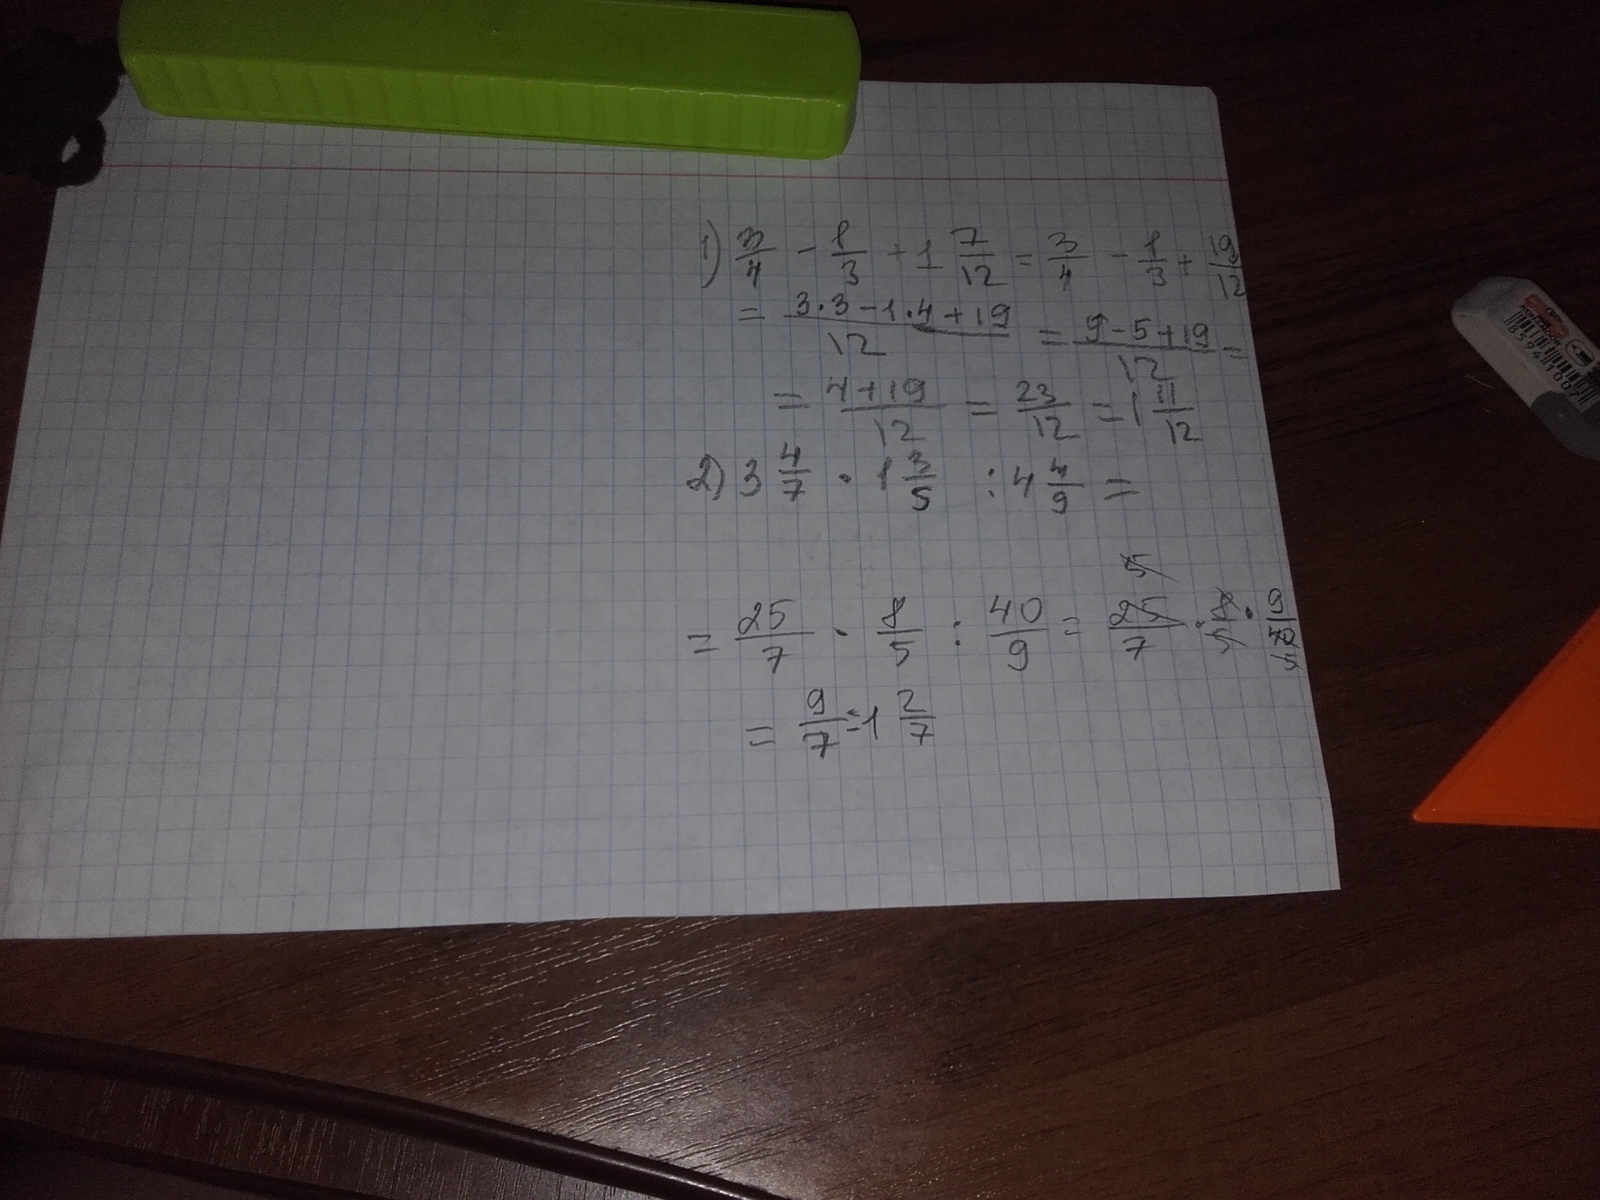 1) 3/4 - 1/3 + 1 7/12 = 3/4 - 1/3 + 19/12
= (3·3-1·4+19)/12 = (9-5+19)/12 =
= (4+19)/12 = 23/12 = 1 11/12
2) 3 4/7 · 1 3/5 : 4 4/9 =
5
= 25/7 · 8/5 : 40/9 = 25/7 · 8/5 · 9/40
5
= 9/7 = 1 2/7